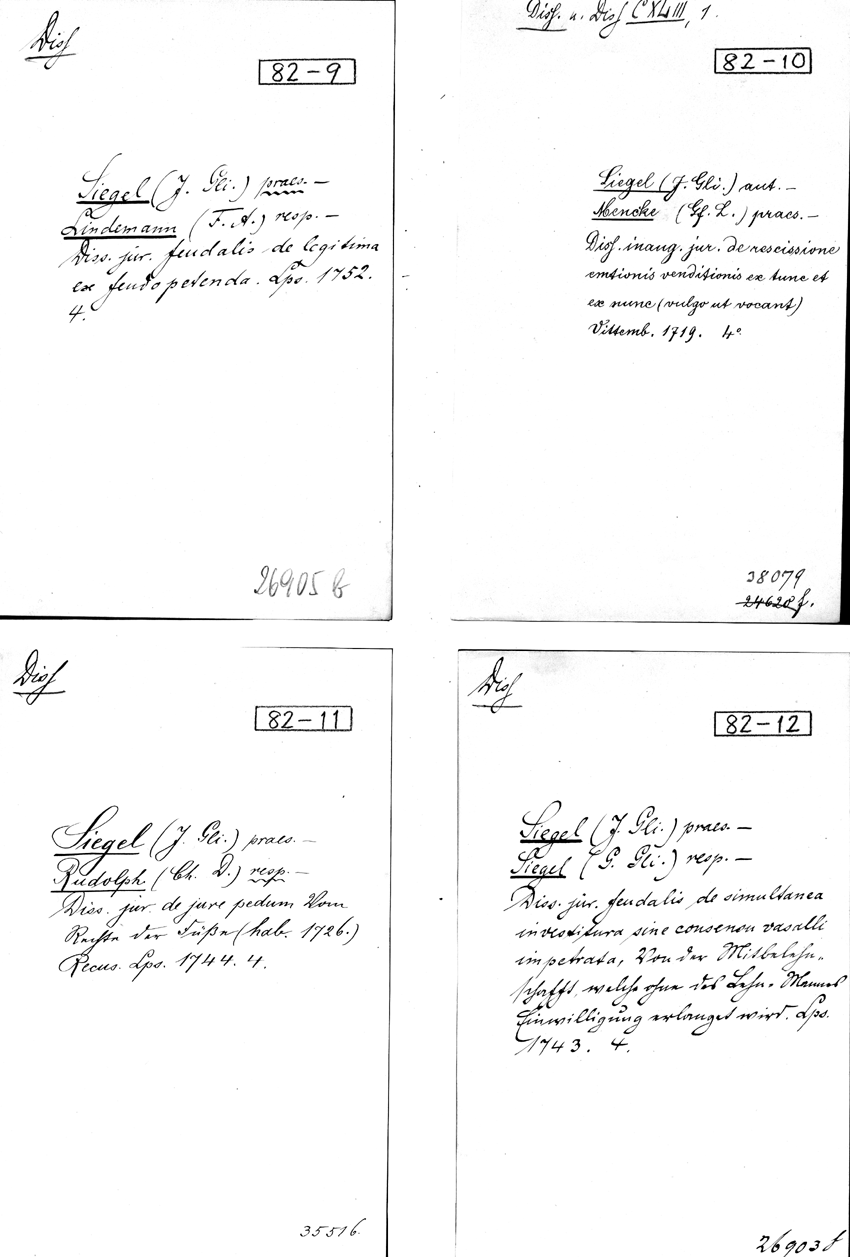 Diss
82-9
Siegel (J. Gli.) praes. —
Lindemann (F. A.) resp. —
Diss. jur. feudalis de legitima
ex feudo petenda. Lps. 1752.
4.
26905 b
Diss. u. Diss CXLIII, 1.
82-10
Siegel (J. Gli.) aut. —
Mencke (Gf. L.) praes. —
Diss. inaug. jur. de rescissione
emtionis venditionis ex tunc et
ex nunc (vulgo ut vocant)
Vittemb. 1719. 4°
38079
24620 f.
Diss
82-11
Siegel (J. Gli.) praes. —
Rudolph (Ch. D.) resp. —
Diss. jur. de jure pedum Vom
Rechte der Füße (hab. 1726.)
Recus. Lps. 1744. 4.
35516.
Diss
82-12
Siegel (J. Gli.) praes. —
Siegel (G. Gli.) resp. —
Diss. jur. feudalis de simultanea
investitura sine consensu vasalli
impetrata, Von der Mitbelehn-
schafft, welche ohne des Lehn-Mannes
Einwilligung erlanget wird. Lps.
1743. 4.
26903 f